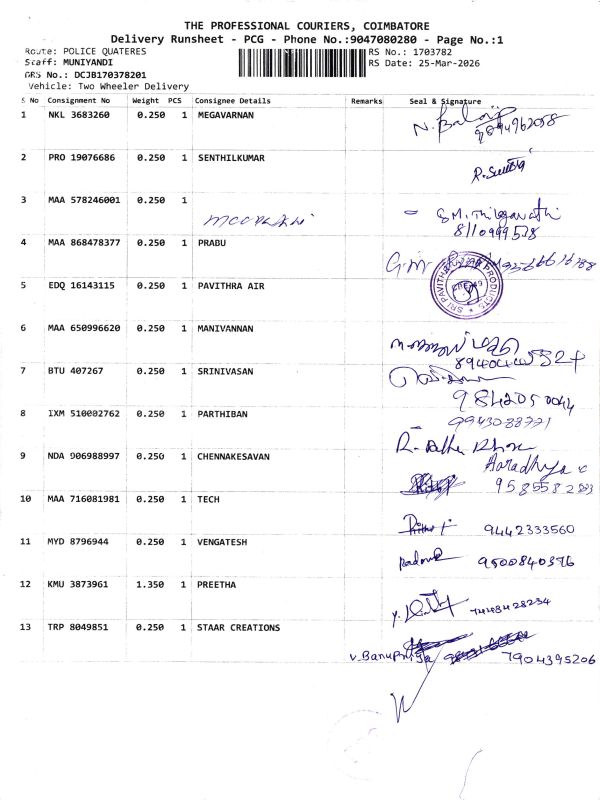 THE PROFESSIONAL COURIERS, COIMBATORE
Delivery Runsheet - PCG - Phone No.:9047080280 - Page No.:1
Route: POLICE QUATERES
RS No.: 1703782
Scaff: MUNIYANDI
RS Date: 25-Mar-2026
GRS No.: DCJB170378201
Vehicle: Two Wheeler Delivery
S No Consignment No Weight PCS Consignee Details Remarks Seal & Signature
1 NKL 3683260 0.250 1 MEGAVARNAN
N. Balaji
2 PRO 19076686 0.250 1 SENTHILKUMAR
3 MAA 578246001 0.250 1
S.M. Thilagavathi
8110999538
4 MAA 868478377 0.250 1 PRABU
G.M.
5 EDQ 16143115 0.250 1 PAVITHRA AIR
SRI PAVITHRA PRODUCTS
6 MAA 650996620 0.250 1 MANIVANNAN
7 BTU 407267 0.250 1 SRINIVASAN
9842050044
8 IXM 510002762 0.250 1 PARTHIBAN
9943088771
9 NDA 906988997 0.250 1 CHENNAKESAVAN
Aaradhya
10 MAA 716081981 0.250 1 TECH
9442333560
11 MYD 8796944 0.250 1 VENGATESH
9500840376
12 KMU 3873961 1.350 1 PREETHA
7448428234
13 TRP 8049851 0.250 1 STAAR CREATIONS
V. Banupriya 7904395206